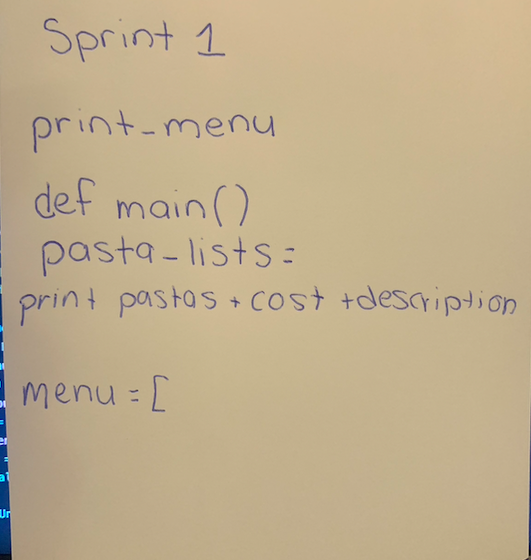 Sprint 1
print_menu
def main()
pasta_lists=
print pastas + cost + description
menu = [